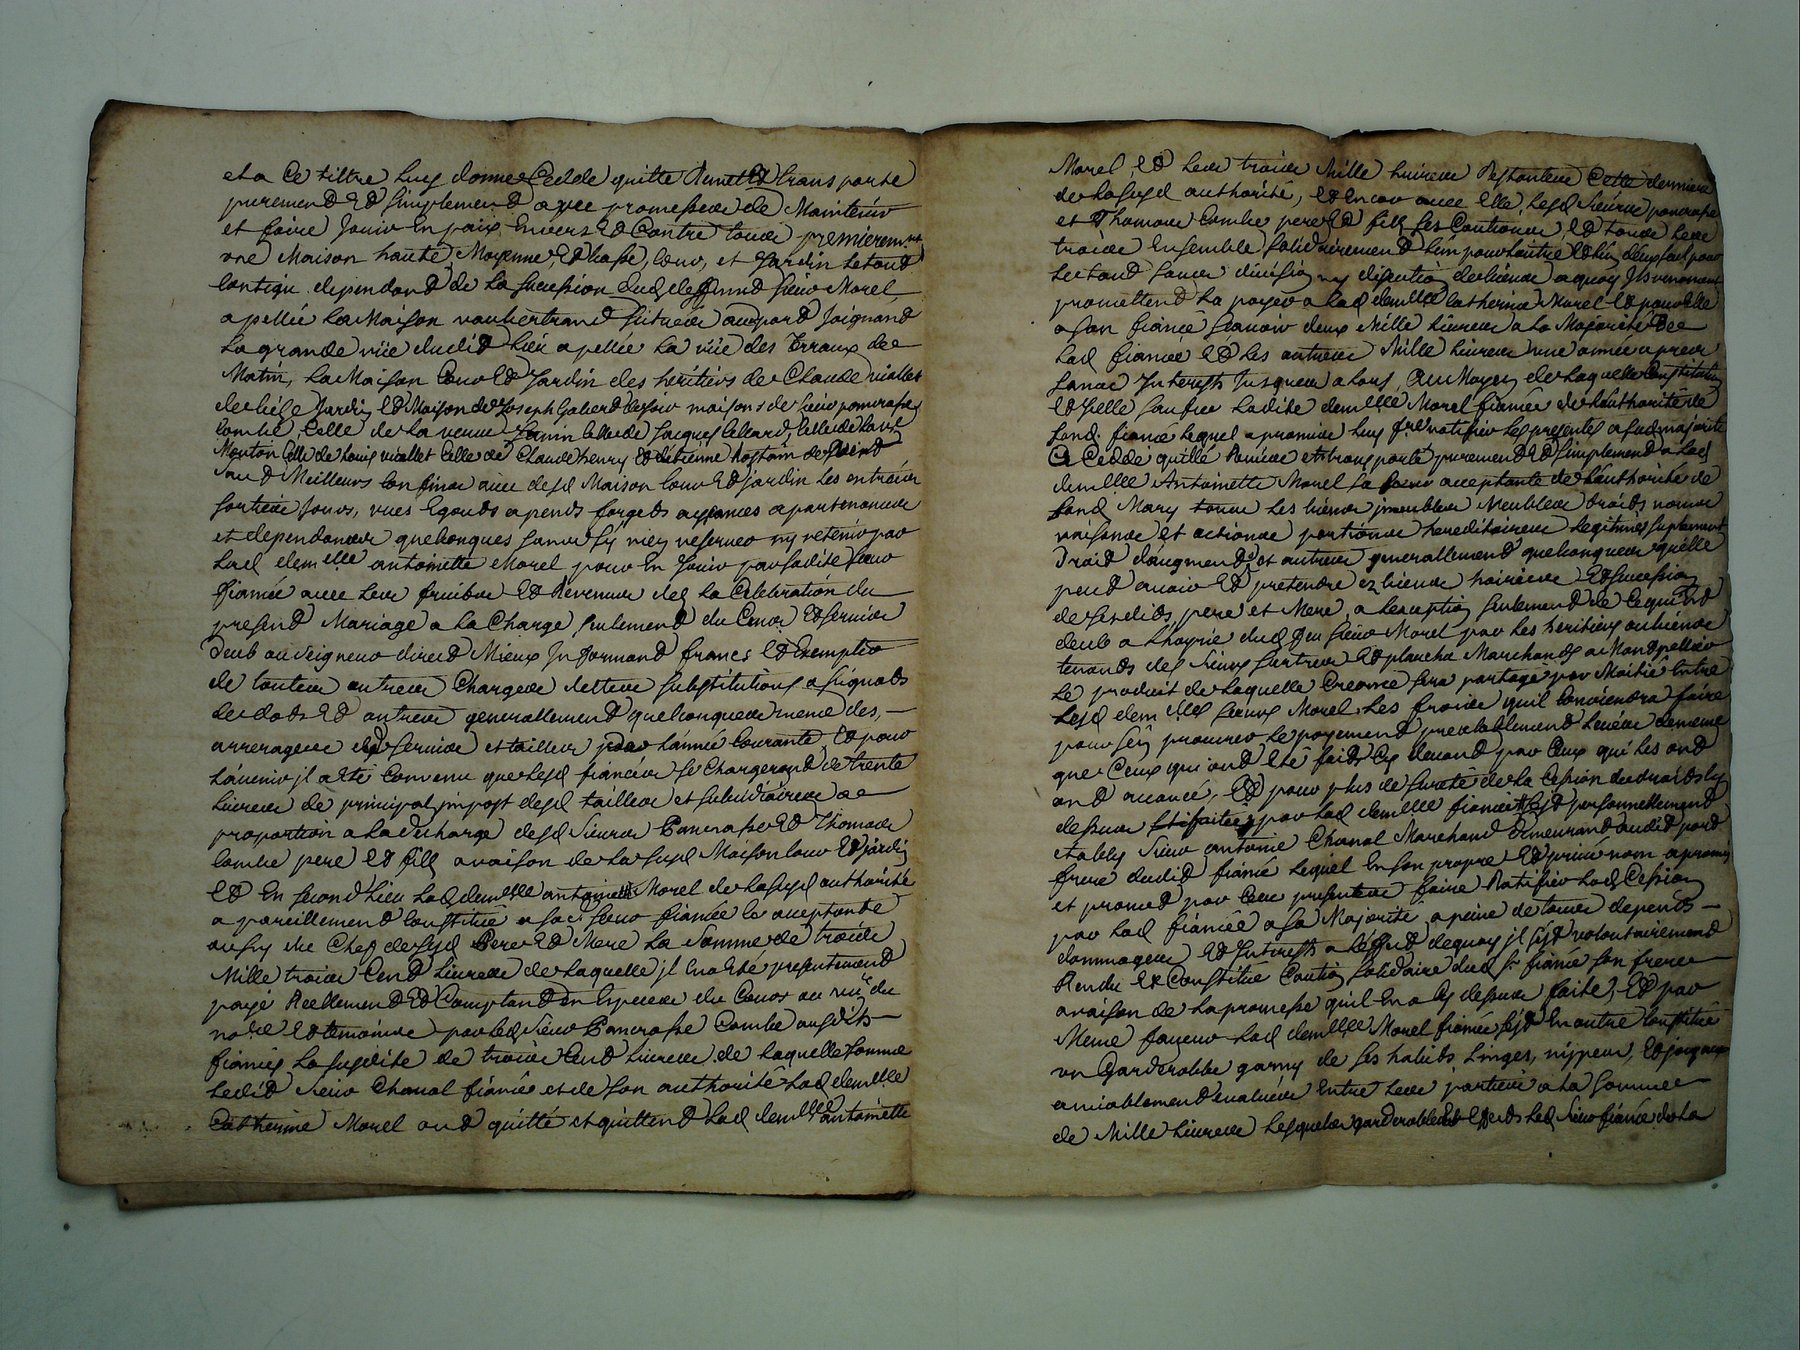 et a Ce tiltre luy donne Cedde quitte Remet Et transporte
purement Et simplement avec promesse de Maintenir
et faire Jouir En paix Envers Et Contre tous premierement
vne Maison haute Moyenne, Et basse, Cour, et Jardin le tout
Contigu dependant de la sucession dud deffunt sieur Morel,
apellée La Maison vaubertrand située audit Joignant
La grande rüe dudit lieu apellée La rüe des Terraux de
Matin, La Maison Cour Et Jardin des heritiers de Claude viallet
de bize Jardin Et Maison de Joseph Galierd de soir maisons de sieur pancrasse
Combe, Celle de la veuve Celle de Jacques Celle de
Mouton Celle de Louis viallet Celle de Claude henry Et d'etienne de vent
sauf Meilleurs Confins avec desd Maison Cour Et jardin Les entrées
sorties Jours, vues Egouts apends forgets aysances apartenances
et dependances quelconques sans sy rien reserver ny retenir par
Lad demelle antoinette Morel pour En Jouir par sadite sœur
fiancée avec leur fruits Et Revenus des la Celebration du
present Mariage a la Charge seulement du Cens Et servis
Deub au seigneur direct Mieux Informant francs Et Exempts
de toutes autres Charges dettes substitutions
Et autres generallement quelconques meme des
arrerages dud servis et tailles pour l'année Courante, Et pour
L'avenir il a eté Convenu que lesd fiancés se Chargeront de trente
livres de principal impost desd tailles et subsidiaires a
proportion a la decharge desd sieurs Pancrasse Et Thomas
Combe pere Et fils a raison de la susd Maison Cour Et jardin
Et En second lieu lad demelle antoinette Morel de la susd authorité
a pareillement Constitué a sad sœur fiancée Ce acceptante
du Chef desd Pere Et Mere La somme de trois
Mille trois Cent livres de laquelle il En a eté presentement
payé Réellement Et Comptant En Especes du Cours au veu du
nore Et temoins par led sieur Pancrasse Combe ausdits
fiancés la susdite de trois Cent livres de laquelle somme
ledit sieur Chanal fiancé et de son authorité lad demelle
Catherine Morel ont quitté et quittent lad demelle antoinette
Morel, Et les trois Mille livres Restantes Cette derniere
de la susd authorité, Et En Cor avec Elle, lesd sieurs pancrasse
et Thomas Combe pere Et fils ses Cautions, Et tous les
trois Ensemble solidairement l'un pour l'autre Et l'un d'eux seul pour
le tout sans division ny discution de biens a quoy Ils renoncent
promettent la payer a lad demelle Catherine Morel Et pour Elle
a son fiancé sçavoir deux Mille livres a la Majorité de
lad fiancée Et les autres Mille livres une année apres
sans Interests Jusques alors, Au Moyen de laquelle Constitution
Et ladite demelle Morel fiancée de l'authorité de
sond. fiancé lequel a promis luy faire ratifier les presentes a sad majorité
a Cedde quitté Remise et transporté purement Et simplement a lad
demelle Antoinette Morel sa sœur acceptante de l'authorité de
sond Mary tous les biens immeubles Meubles droits noms
raisons et actions portions hereditaires legitimes suplement
Droit d'augment et autres generallement quelconques qu'elle
peut avoir Et pretendre ez biens hoiries Et sucession
de sesdits pere et Mere, a l'exception seulement de Ce qui Est
deub a l'hoyrie dud feu sieur Morel par les heritiers ou biens
tenants des sieurs Et planche Marchands a Montpellier
le produit de laquelle Creance sera partagé par Moitié Entre
lesd demelles sœurs Morel, Les fraix qu'il Conviendra faire
pour s'En procurer le payement prealablement levés de meme
que Ceux qui ont Eté faits Cy devant par Ceux qui les ont
ont avancé, Et pour plus de sureté de la Cession des droits Cy
dessus faite par lad demelle fiancée personnellement
etably sieur antoine Chanal Marchand demeurant audit
frere dudit fiancé lequel En son propre Et privé nom a promis
et promet par Ces presentes faire Ratifier lad Cession
par lad fiancée a sa Majorité, a peine de tous depends
dommages Et Interests a l'effet dequoy il s'est volontairement
Rendu Et Constitué Caution solidaire dud sr fiancé son frere
a raison de la promesse qu'il En a Cy dessus faite, Et par
Meme faveur lad demelle Morel fiancée s'est En outre Constitué
un Garderobbe garny de ses habits Linges, nippes, Et joyaux
amiablement Evalués Entre les parties a la somme
de Mille livres lesquels garderobbe Et Effets led sieur fiancé de la